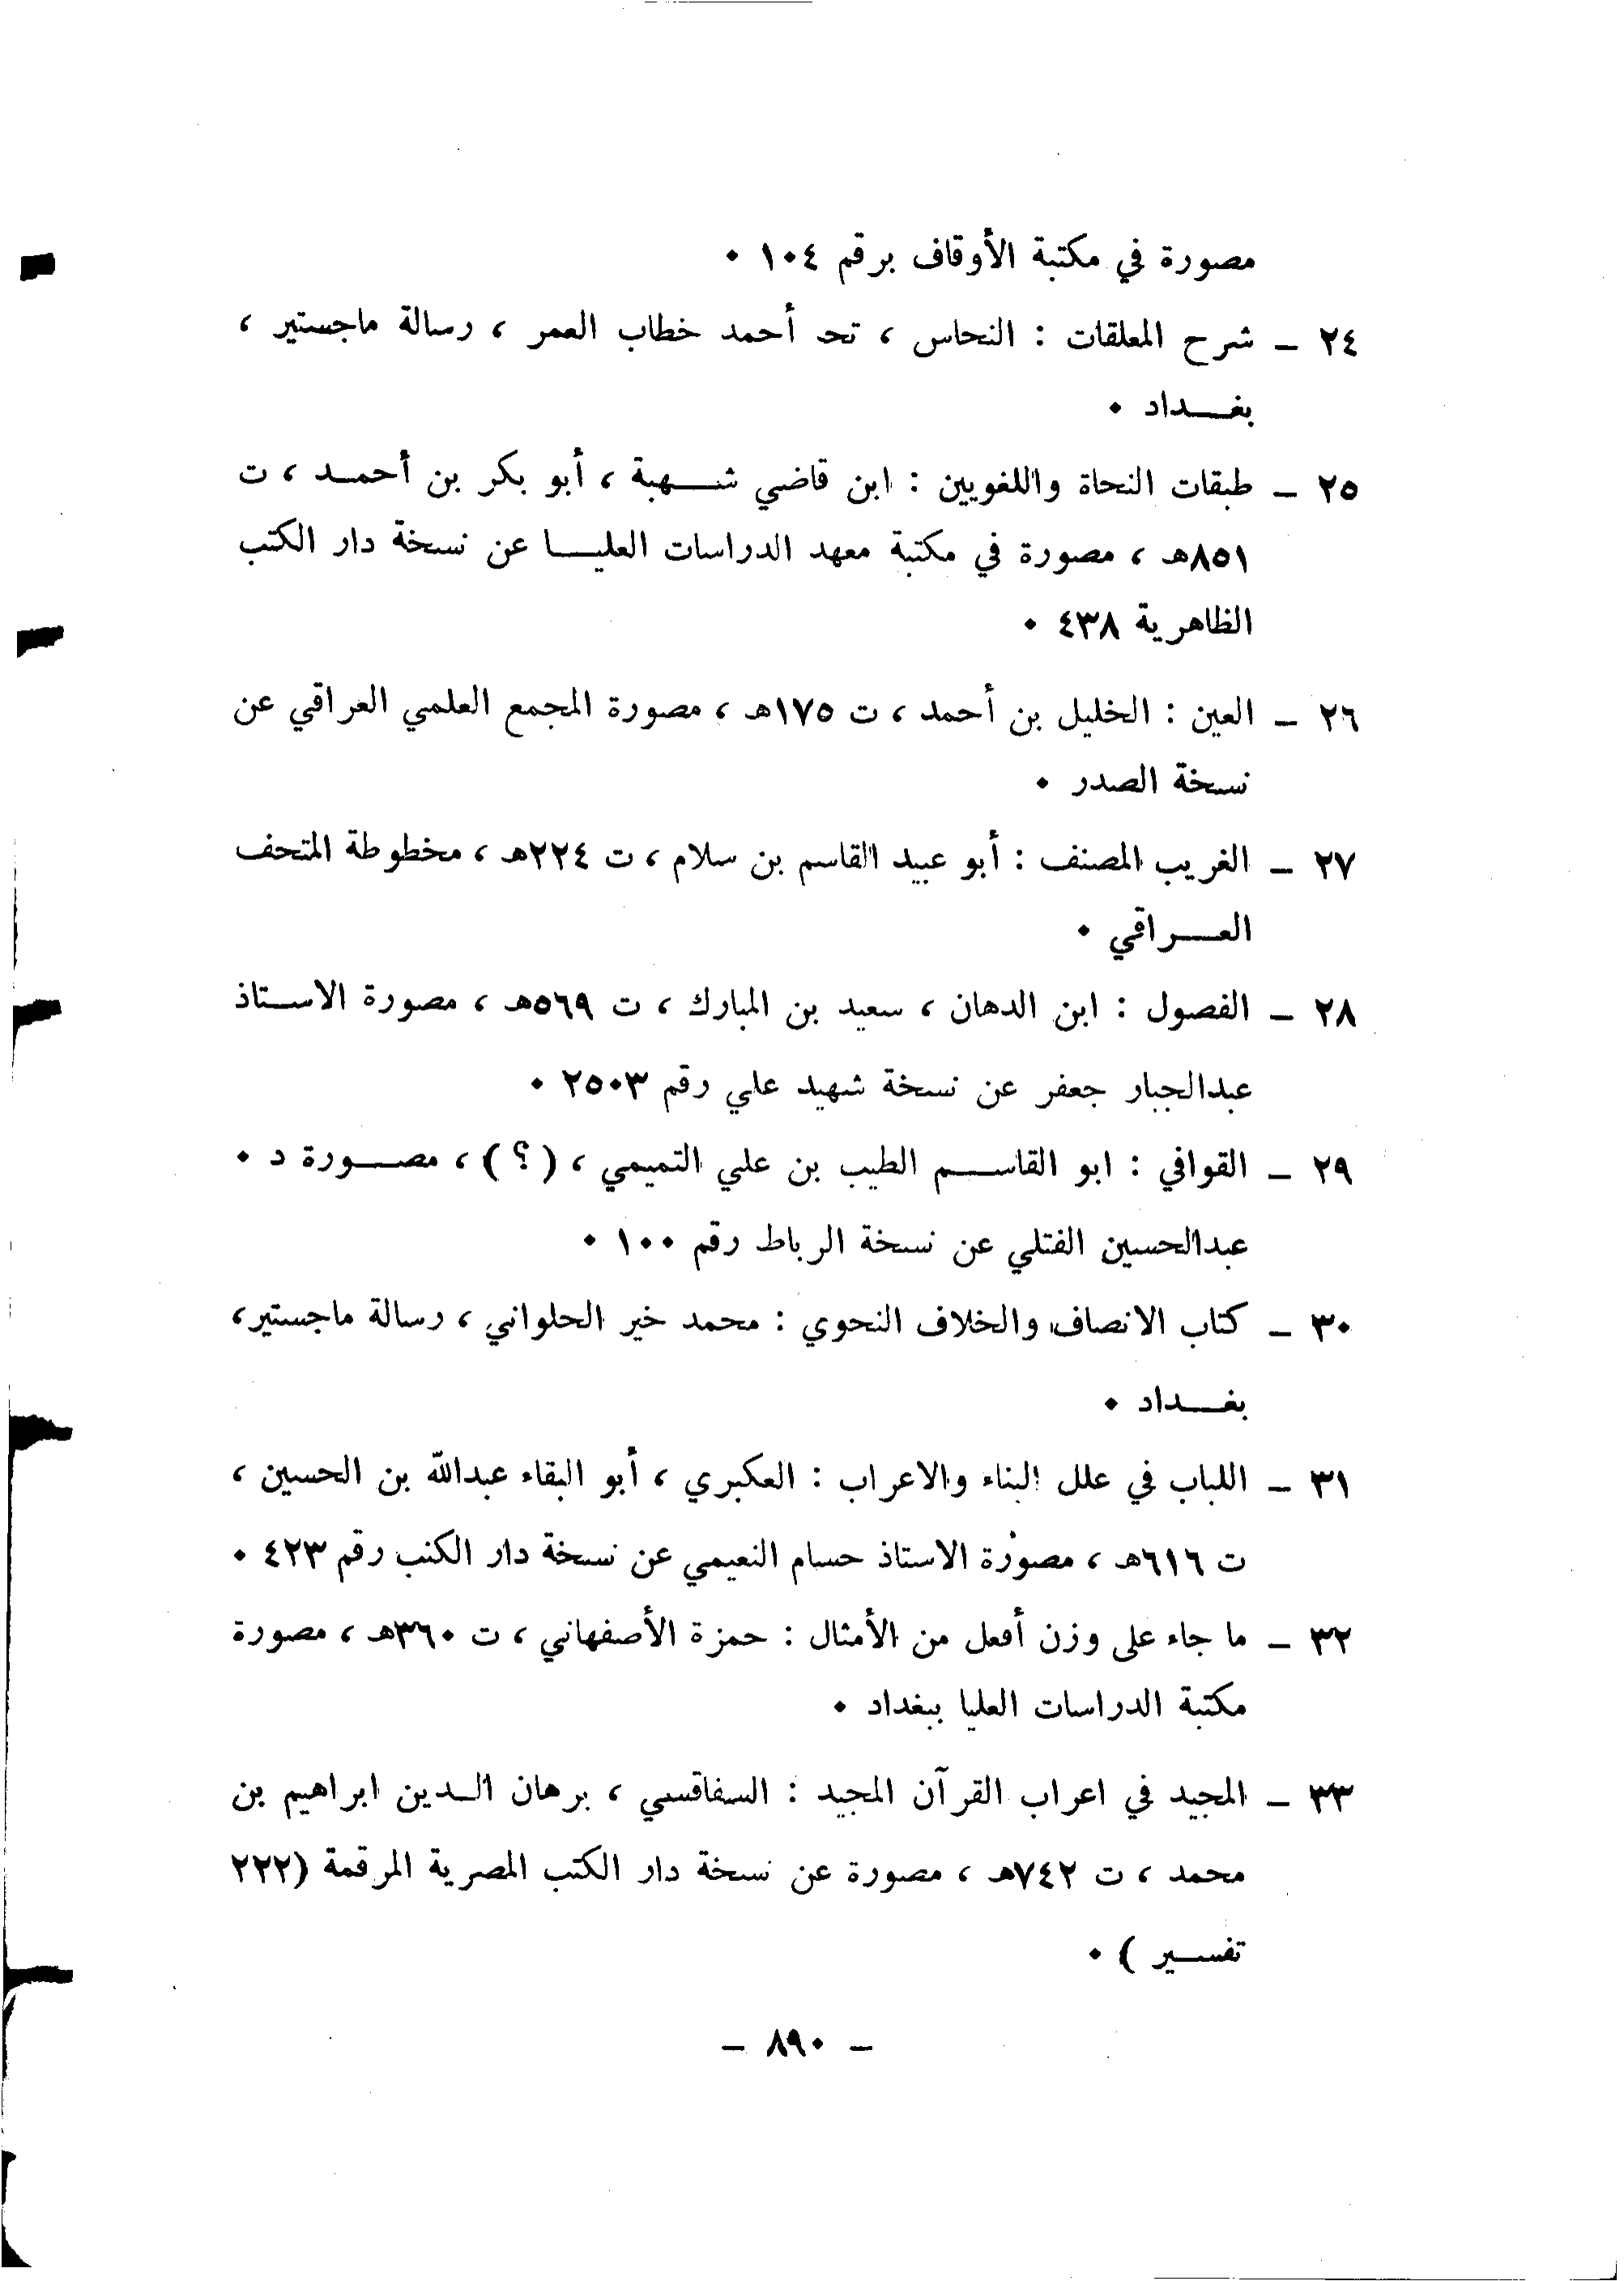 مصورة في مكتبة الأوقاف برقم ١٠٤ ٠
٢٤ ـ شرح المعلقات : النحاس ، تحـ أحمد خطاب العمر ، رسالة ماجستير ،
بغـــداد ٠
٢٥ ـ طبقات النحاة واللغويين : ابن قاضي شـــهبة ، أبو بكر بن أحمــد ، ت
٨٥١هـ ، مصورة في مكتبة معهد الدراسات العليـــا عن نسخة دار الكتب
الظاهرية ٤٣٨ ٠
٢٦ ـ العين : الخليل بن أحمد ، ت ١٧٥هـ ، مصورة المجمع العلمي العراقي عن
نسخة الصدر ٠
٢٧ ـ الغريب المصنف : أبو عبيد القاسم بن سلام ، ت ٢٢٤هـ ، مخطوطة المتحف
العـــراقي ٠
٢٨ ـ الفصول : ابن الدهان ، سعيد بن المبارك ، ت ٥٦٩هـ ، مصورة الاســتاذ
عبدالجبار جعفر عن نسخة شهيد علي رقم ٢٥٠٣ ٠
٢٩ ـ القوافي : ابو القاســـم الطيب بن علي التميمي ، (؟) ، مصـــورة د ٠
عبدالحسين الفتلي عن نسخة الرباط رقم ١٠٠ ٠
٣٠ ـ كتاب الانصاف والخلاف النحوي : محمد خير الحلواني ، رسالة ماجستير،
بغـــداد ٠
٣١ ـ اللباب في علل البناء والاعراب : العكبري ، أبو البقاء عبدالله بن الحسين ،
ت ٦١٦هـ ، مصورة الاستاذ حسام النعيمي عن نسخة دار الكتب رقم ٤٢٣ ٠
٣٢ ـ ما جاء على وزن أفعل من الأمثال : حمزة الأصفهاني ، ت ٣٦٠هـ ، مصورة
مكتبة الدراسات العليا ببغداد ٠
٣٣ ـ المجيد في اعراب القرآن المجيد : السفاقسي ، برهان الــدين ابراهيم بن
محمد ، ت ٧٤٢هـ ، مصورة عن نسخة دار الكتب المصرية المرقمة (٢٢٢
تفســير ) ٠
ـ ٨٩٠ ـ